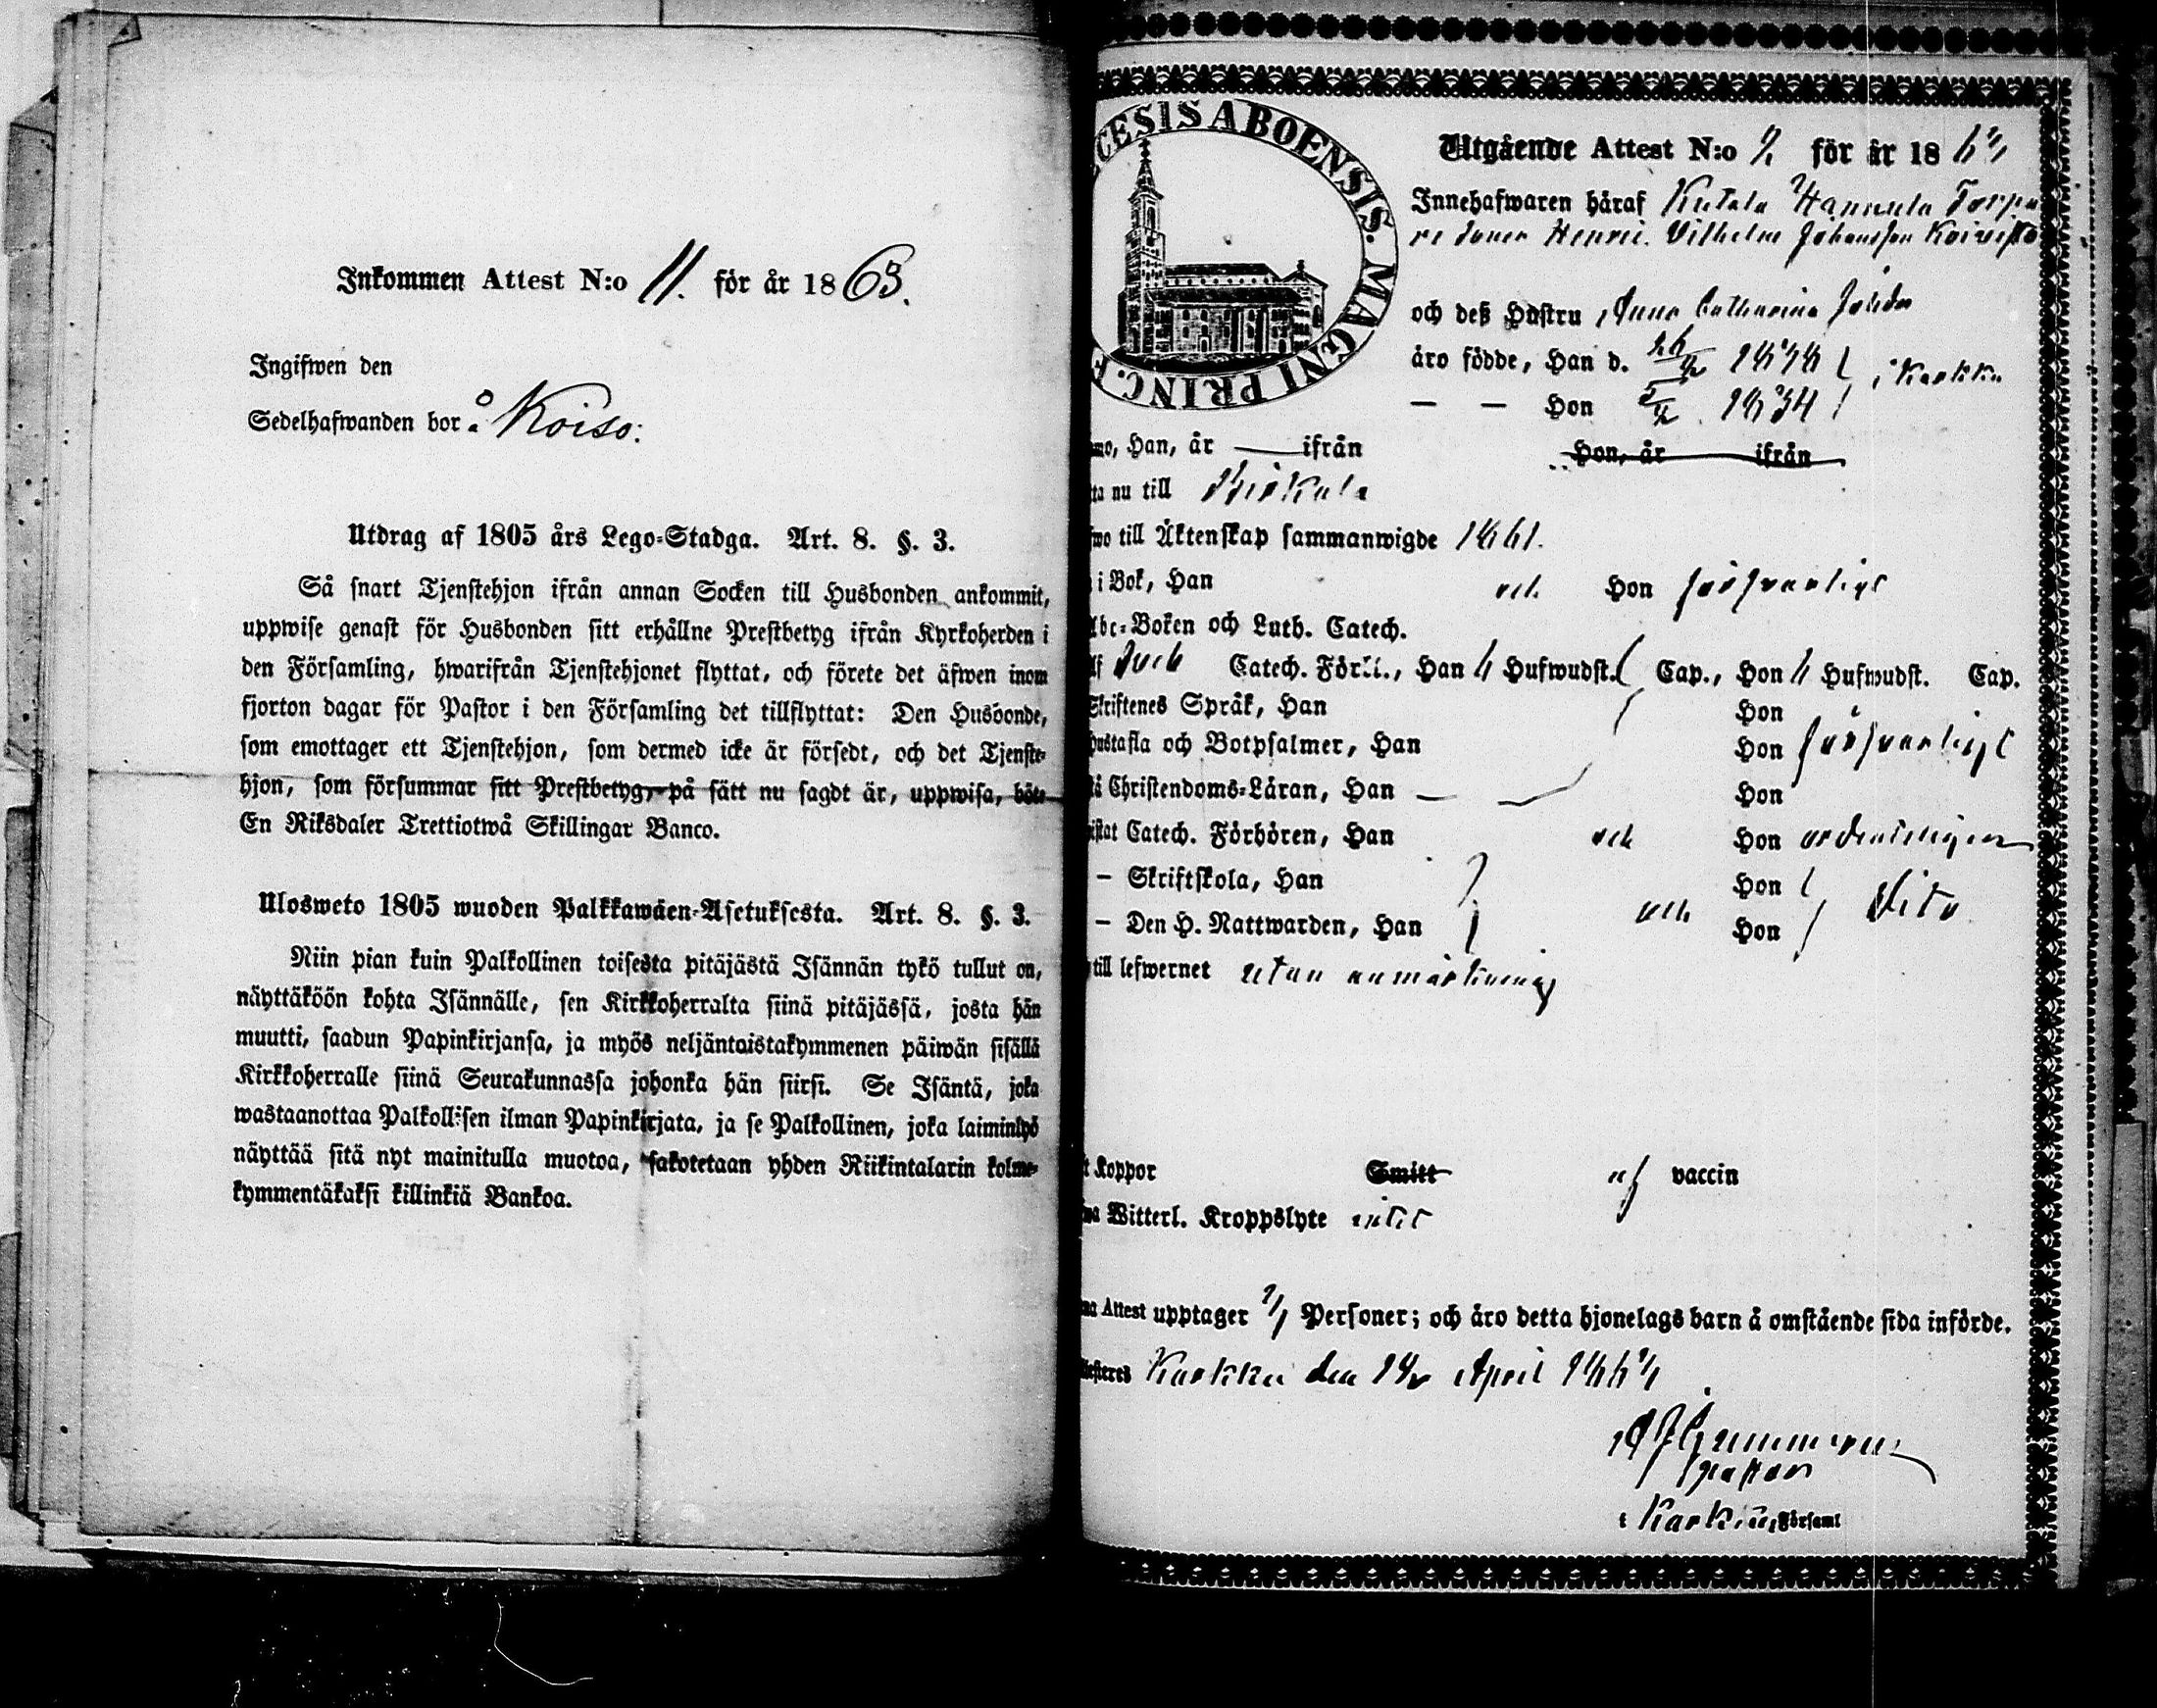 Inkommen Attest N:o 11. för år 1863.
Ingifwen den
Sedelhafwanden bor å Koiso.
Utdrag af 1805 års Lego-Stadga. Art. 8. §. 3.
Så snart Tjenstehjon ifrån annan Socken till Husbonden ankommit,
uppwise genast för Husbonden sitt erhållne Prestbetyg ifrån Kyrkoherden i
den Församling, hwarifrån Tjenstehjonet flyttat, och förete det äfwen inom
fjorton dagar för Pastor i den Församling det tillflyttat: Den Husbonde,
som emottager ett Tjenstehjon, som dermed icke är försedt, och det Tjenste-
hjon, som försummar sitt Prestbetyg, på sätt nu sagdt är, uppwisa, böte
En Riksdaler Trettiotwå Skillingar Banco.
Ulosweto 1805 wuoden Palkkawäen-Asetuksesta. Art. 8. §. 3.
Niin pian kuin Palkollinen toisesta pitäjästä Isännän tykö tullut on,
näyttäköön kohta Isännälle, sen Kirkkoherralta siinä pitäjässä, josta hän
muutti, saadun Papinkirjansa, ja myös neljäntoistakymmenen päiwän sisällä
Kirkkoherralle siinä Seurakunnassa johonka hän siirsi. Se Isäntä, joka
wastaanottaa Palkollisen ilman Papinkirjata, ja se Palkollinen, joka laiminlyö
näyttää sitä nyt mainitulla muotoa, sakotetaan yhden Riikintalarin kolme-
kymmentäkaksi killinkiä Bankoa.
CESIS ABOENSIS. MAGNI PRINC. F
Utgående Attest N:o för år 186
Innehafwaren häraf Kutala Hannula Torpa
re sonen Henric Vilhelm Johansson Koivisto
och deß Hustru Anna Catharina Johdr
äro födde, Han d. 26 1838 i Karkku
— — Hon 5 1834
mo, Han, år — ifrån Hon, år ifrån
ta nu till Birkala
wo till Äktenskap sammanwigde 1861.
i Bok, Han och Hon försvarligt
Abc-Boken och Luth. Catech.
lf och Catech. Förkl., Han 6 Hufwudst. Cap., Hon 6 Hufwudst. Cap.
Skriftenes Språk, Han Hon
Hustafla och Botpsalmer, Han Hon försvarligt
Christendoms-Läran, Han — Hon
istat Catech. Förhören, Han och Hon ordentligen
— Skriftskola, Han Hon
— Den H. Nattwarden, Han och Hon dito
till lefwernet utan anmärkning
t Koppor Smitt af vaccin
wa Witterl. Kroppslyte intet
na Attest upptager Personer; och äro detta hjonelags barn å omstående sida införde.
testeres Karkku den April 186
pastor
i Karkku Församl